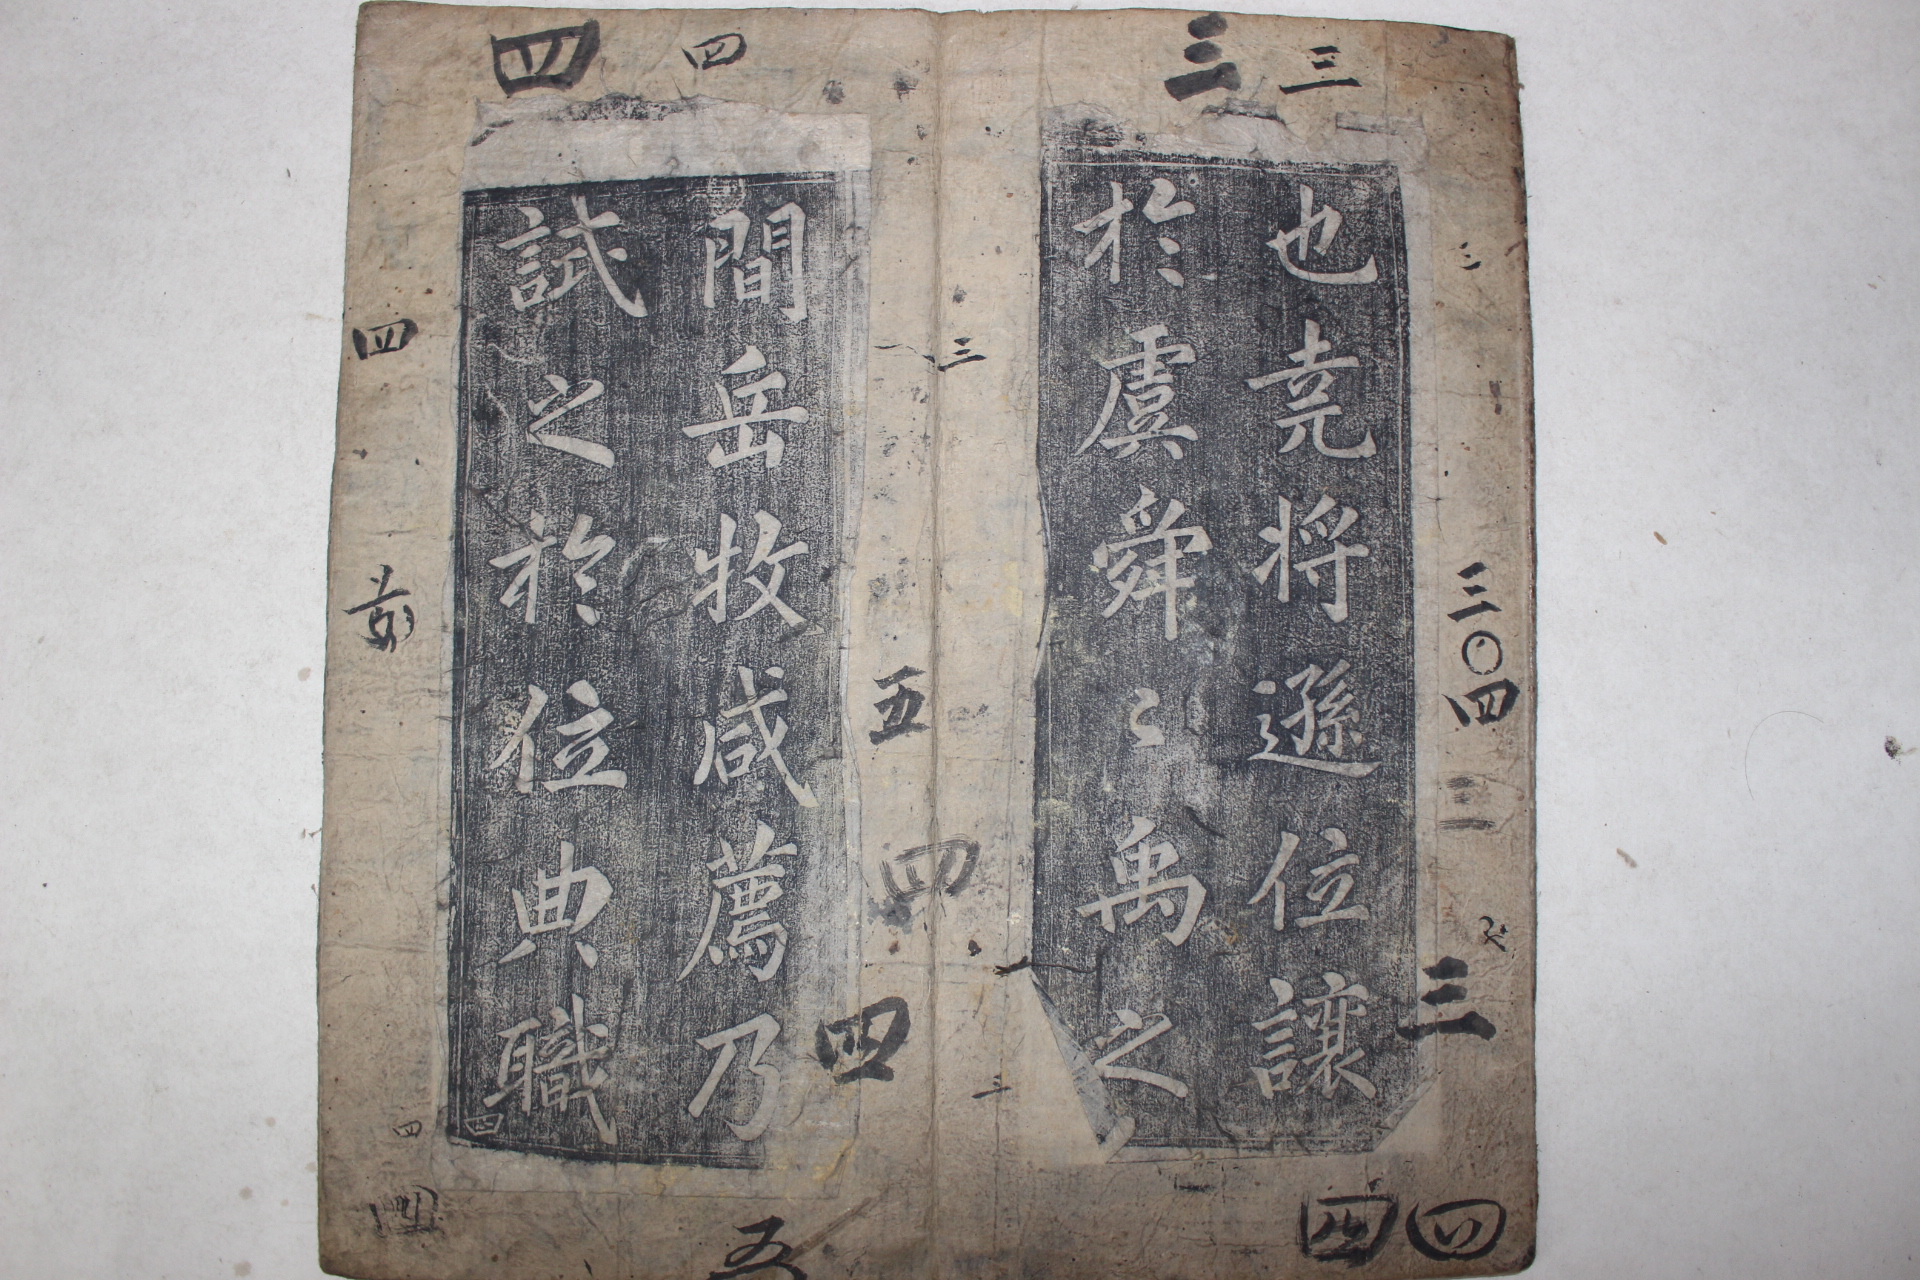 三 三
也尭将遜位讓
於虞舜〻禹之
三
三〇四
二二
三
三
三
四 四
四 四
間岳牧咸薦乃
試之於位典職
五
四
四
五
四
四
四
四